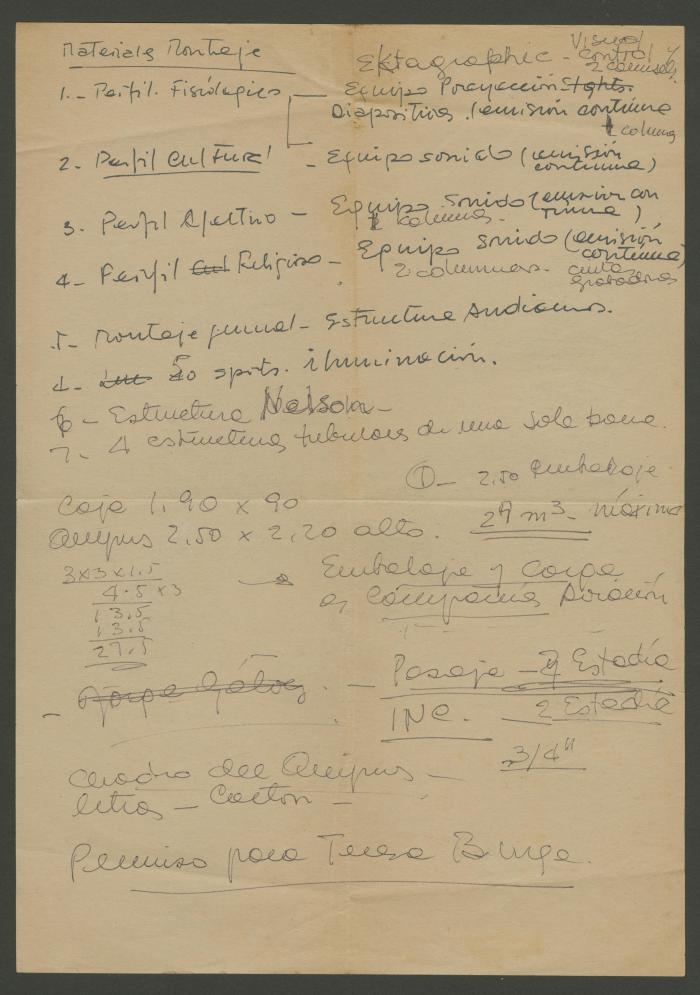 Materiales Montaje
Ektagraphic - Visual control y
1.- Perfil Fisiológico — Equipo Proyección
Diapositivas (emisión continua
1 columna
2. Perfil Cultural - Equipo sonido (emisión continua)
3. Perfil Afectivo - Equipo sonido (emisión continua)
1 columna.
4- Perfil Religioso - Equipo sonido (emisión continua)
2 columnas. cintas grabadoras
5- Montaje general - Estructura Andiamos.
50 spots. iluminación.
6- Estructura Nelson -
7- 4 estructuras tubulares de una sola barra.
① - 2.50 Embalaje
Caja 1.90 x 90
27 m3 - máximo
Quipus 2.50 x 2.20 alto.
3x3x1.5
4.5 x3
13.5
13.5
27.5
Embalaje y carga
a Compañía Aviación
Pasaje - y Estadía
INC. - 2 Estadía
3/4"
cuadro del Quipus -
letras - Carton -
Permiso para Teresa Burga.